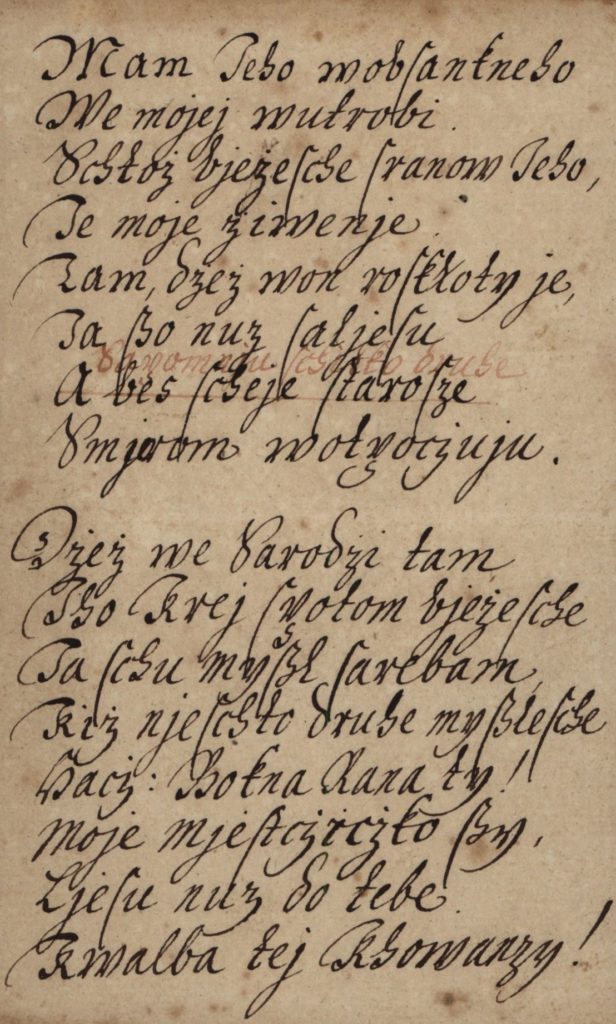 Mam Jeho wobsankneho
We mojej wutrobi.
Schtoż bjeżesche sranow Jeho,
Je moje ziwenje.
Tam, dzeż won roskłoty je,
Ja ßo nuz saljesu
A bes scheje starosze
Smjerom wotpoczuju.
Dżeż we Sarodzi tam
Jho Krej spotom bjeżesche
Ja schu myßl sarebam,
Kiż njeschto druhe myßlesche
Hacz: Bokna Rana ty!
Moje mjestcziczko ßy,
Ljesu nuz do tebe.
Kwalba tej Khowanzy!